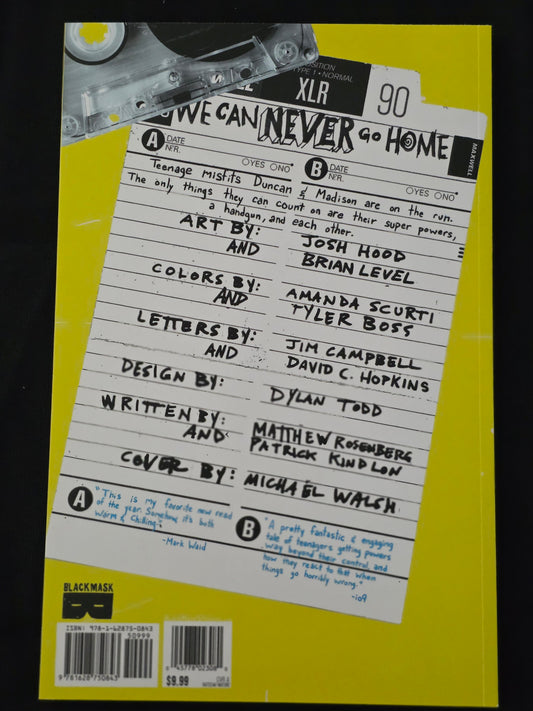 POSITION
TYPE 1 • NORMAL
XLR
90
WE CAN NEVER GO HOME
MAXWELL
A DATE
NR.
YES NO
B DATE
NR.
YES NO
Teenage misfits Duncan & Madison are on the run.
The only things they can count on are their super powers,
a handgun, and each other.
ART BY: JOSH HOOD
AND BRIAN LEVEL
COLORS BY: AMANDA SCURTI
AND TYLER BOSS
LETTERS BY: JIM CAMPBELL
AND DAVID C. HOPKINS
DESIGN BY: DYLAN TODD
WRITTEN BY: MATTHEW ROSENBERG
AND PATRICK KINDLON
COVER BY: MICHAEL WALSH
A
"This is my favorite new read
of the year. Somehow, it's both
Warm & Chilling."
-Mark Waid
B
"A pretty fantastic & engaging
tale of teenagers getting powers
way beyond their control, and
how they react to that when
things go horribly wrong."
-io9
BLACKMASK
ISBN: 978-1-62875-0843
50999
9781628750843
$9.99